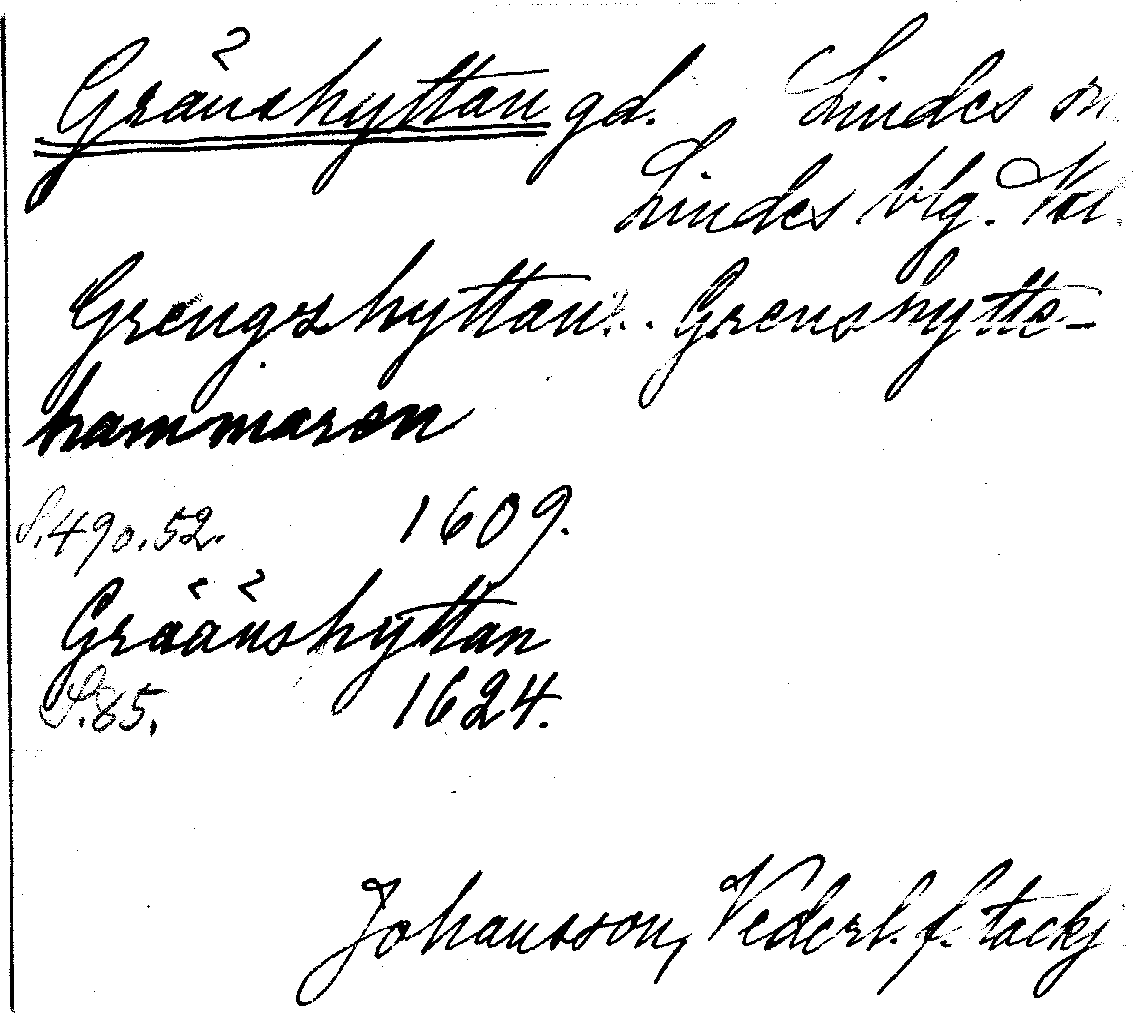 Gränshyttan gd. Lindes sn
Lindes blg. Väs
Grengzhyttan... Grenshytte-
hammaren
S. 490.52. 1609.
Gräänshyttan
S. 85. 1624.
Johansson, Vederl. f. tackj